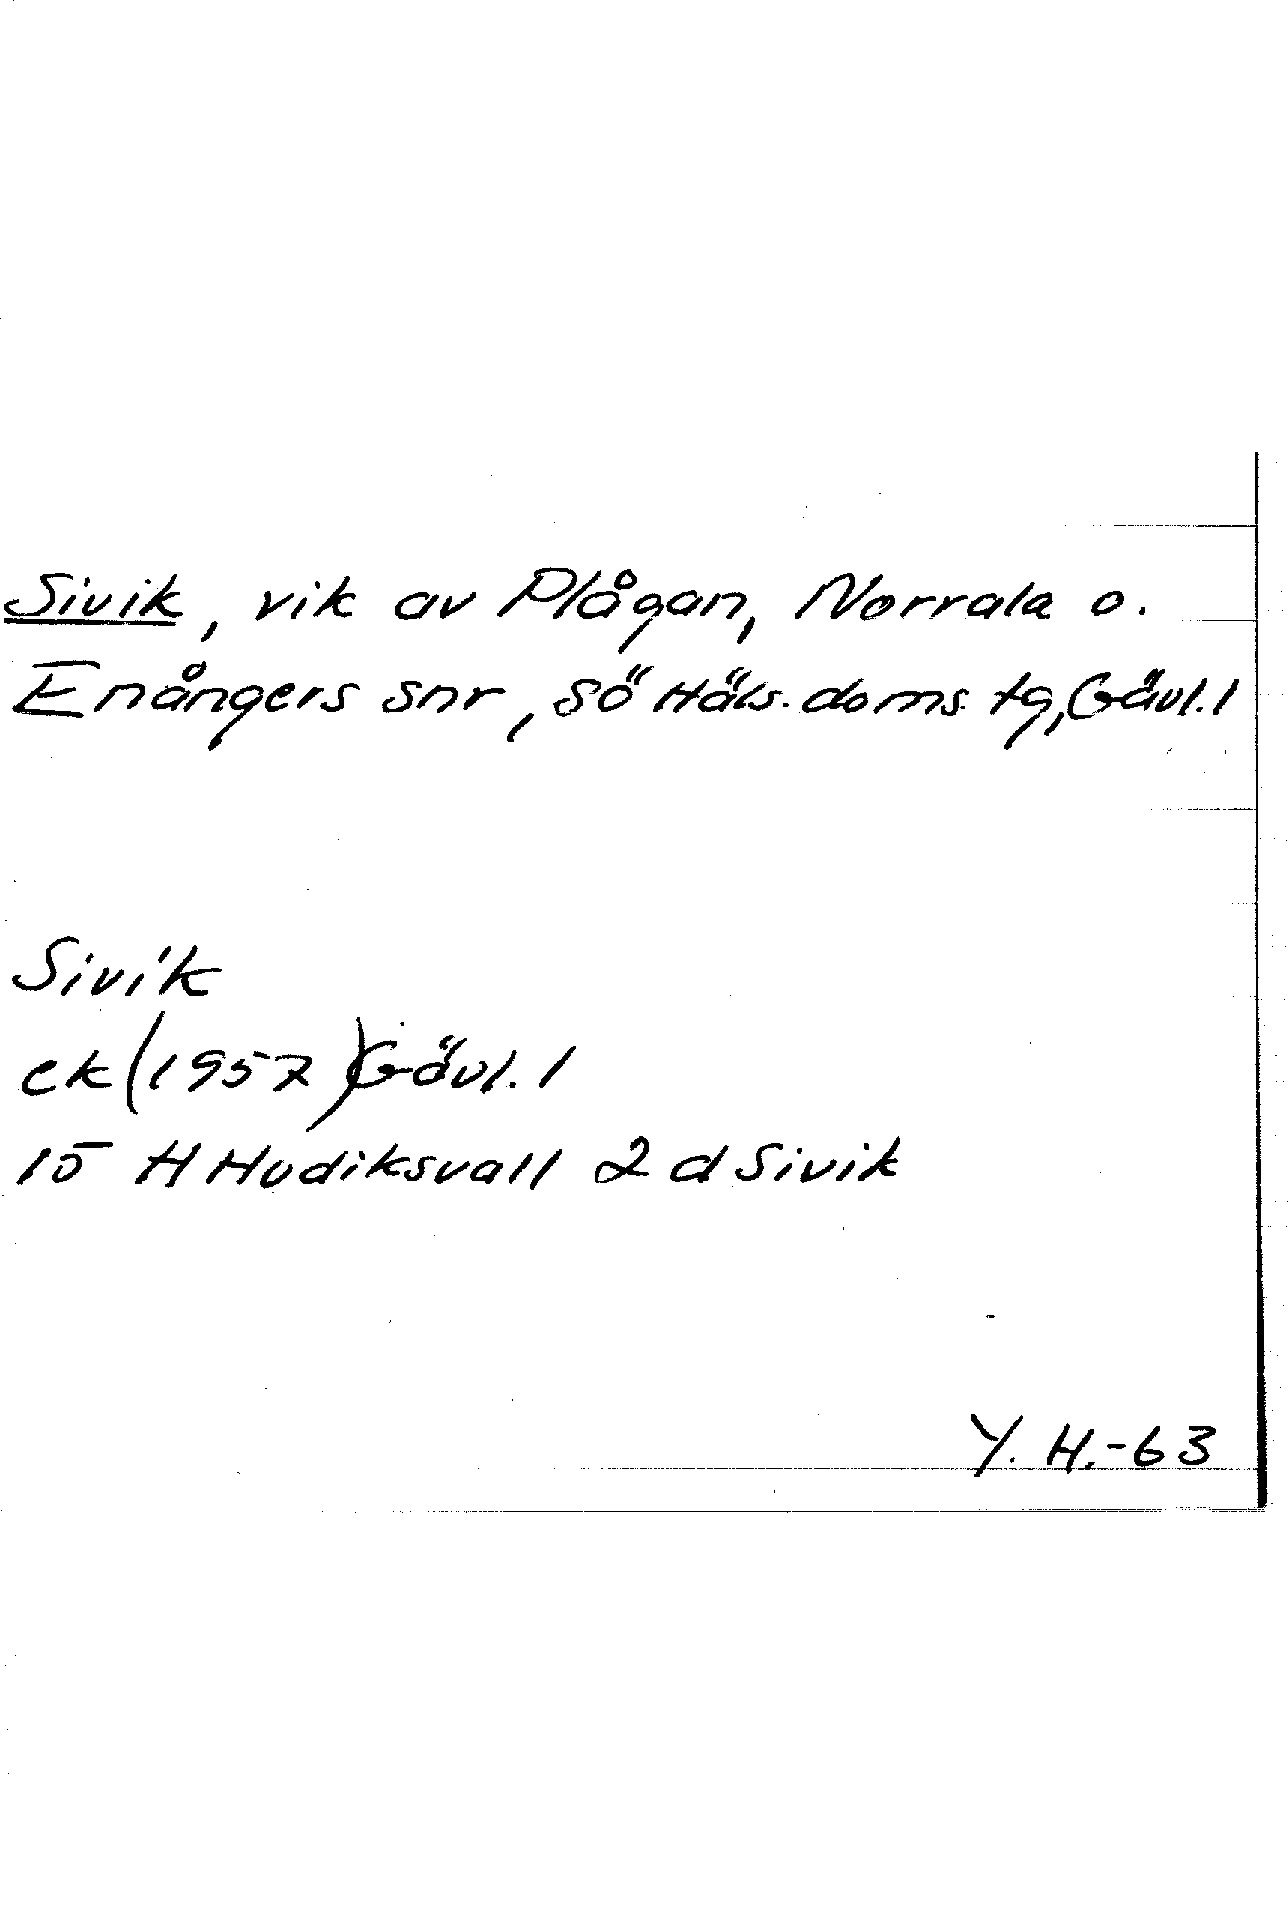 Sivik, vik av Plågan, Norrala o.
Enångers snr, sö Häls. doms. tg, Gävl. l
Sivik
ek (1957) Gävl. l
15 H Hudiksvall 2 d Sivik
Y. H.-63